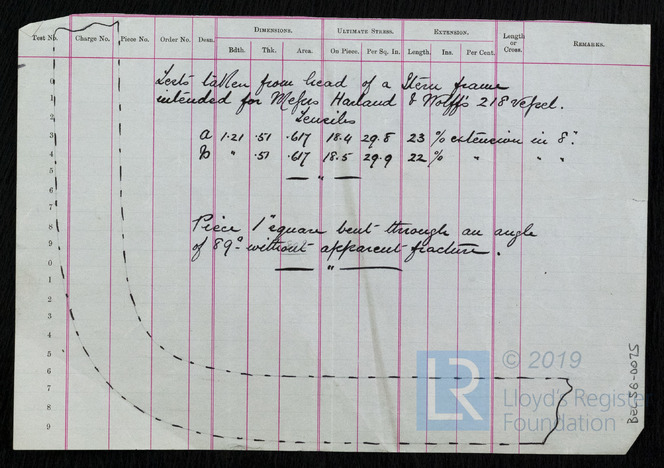 DIMENSIONS. ULTIMATE STRESS. EXTENSION.
Test No. Charge No. Piece No. Order No. Desn. Bdth. Thk. Area. On Piece. Per Sq. In. Length. Ins. Per Cent. Length or Cross. REMARKS.
Tests taken from head of a Stern frame
intended for Messrs Harland & Wolff's 218 Vessel.
Tensiles
a 1.21 .51 .617 18.4 29.8 23 % extension in 8".
b " .51 .617 18.5 29.9 22 % " " "
"
Piece 1" square bent through an angle
of 89° without apparent fracture.
"
0
1
2
3
4
5
6
7
8
9
0
1
2
3
4
5
6
7
8
9
LR © 2019
Lloyd's Register
Foundation
BEL56-0075